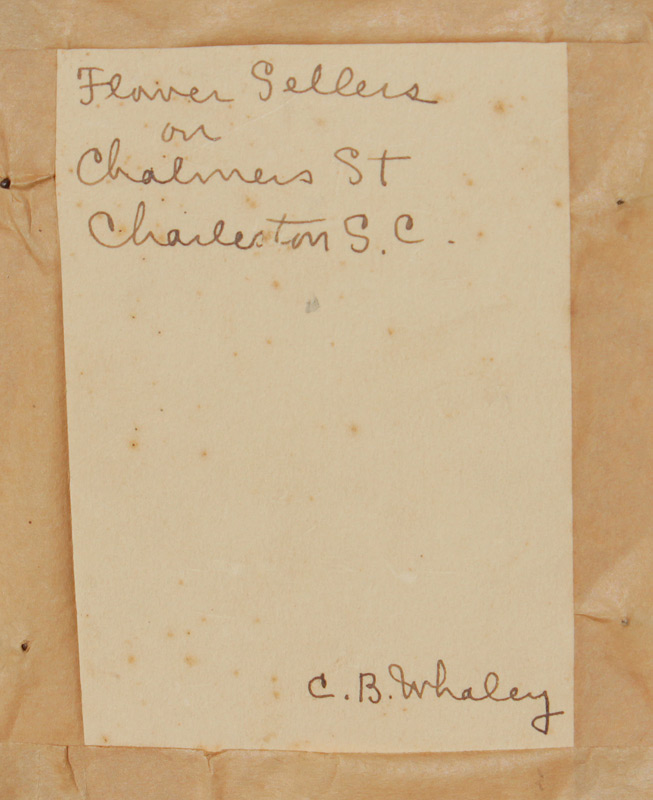 Flower Sellers
on
Chalmers St
Charleston S.C.
C.B. Whaley